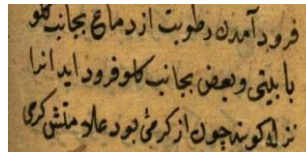 فرود آمدن رطوبت از دماغ بجانب کلو
با بینی و بعضی بجانب کلو فرود اید انرا
نزله کویند چون از کرمی بود علامتش کرمی